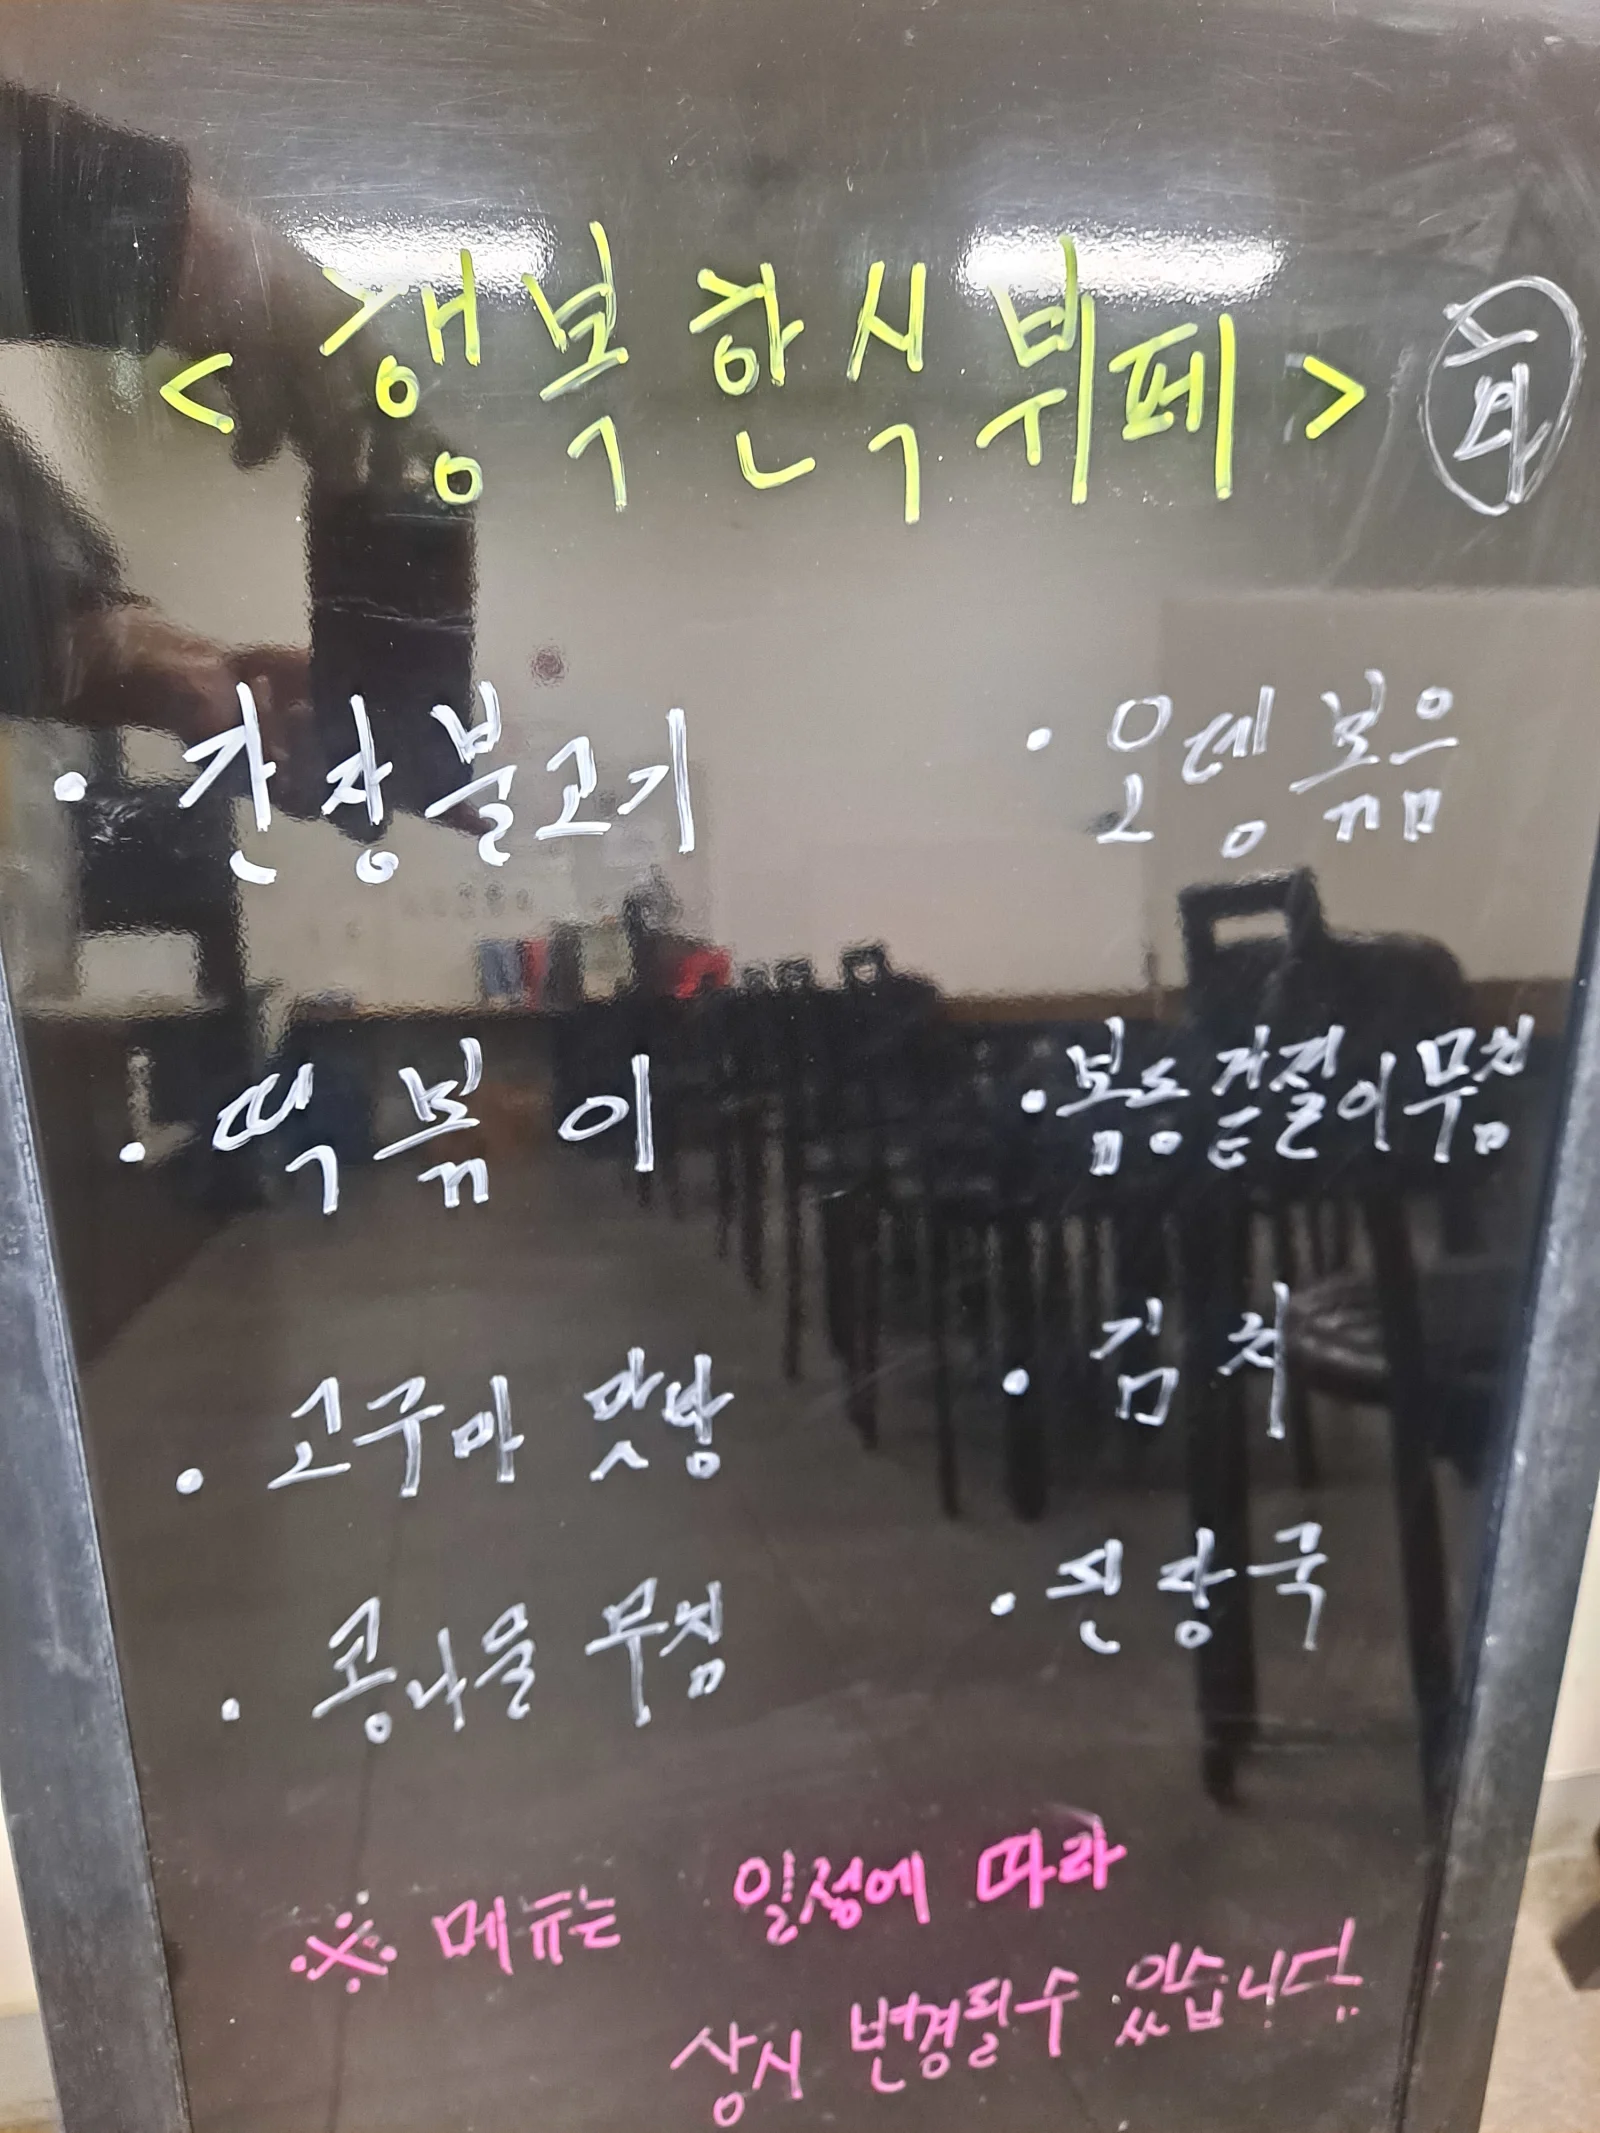 < 행복한식뷔페 >
· 간장불고기
· 오뎅볶음
· 떡볶이
· 봄동겉절이무침
· 고구마 맛탕
· 김치
· 콩나물 무침
· 된장국
※ 메뉴는 일정에 따라
상시 변경될수 있습니다.